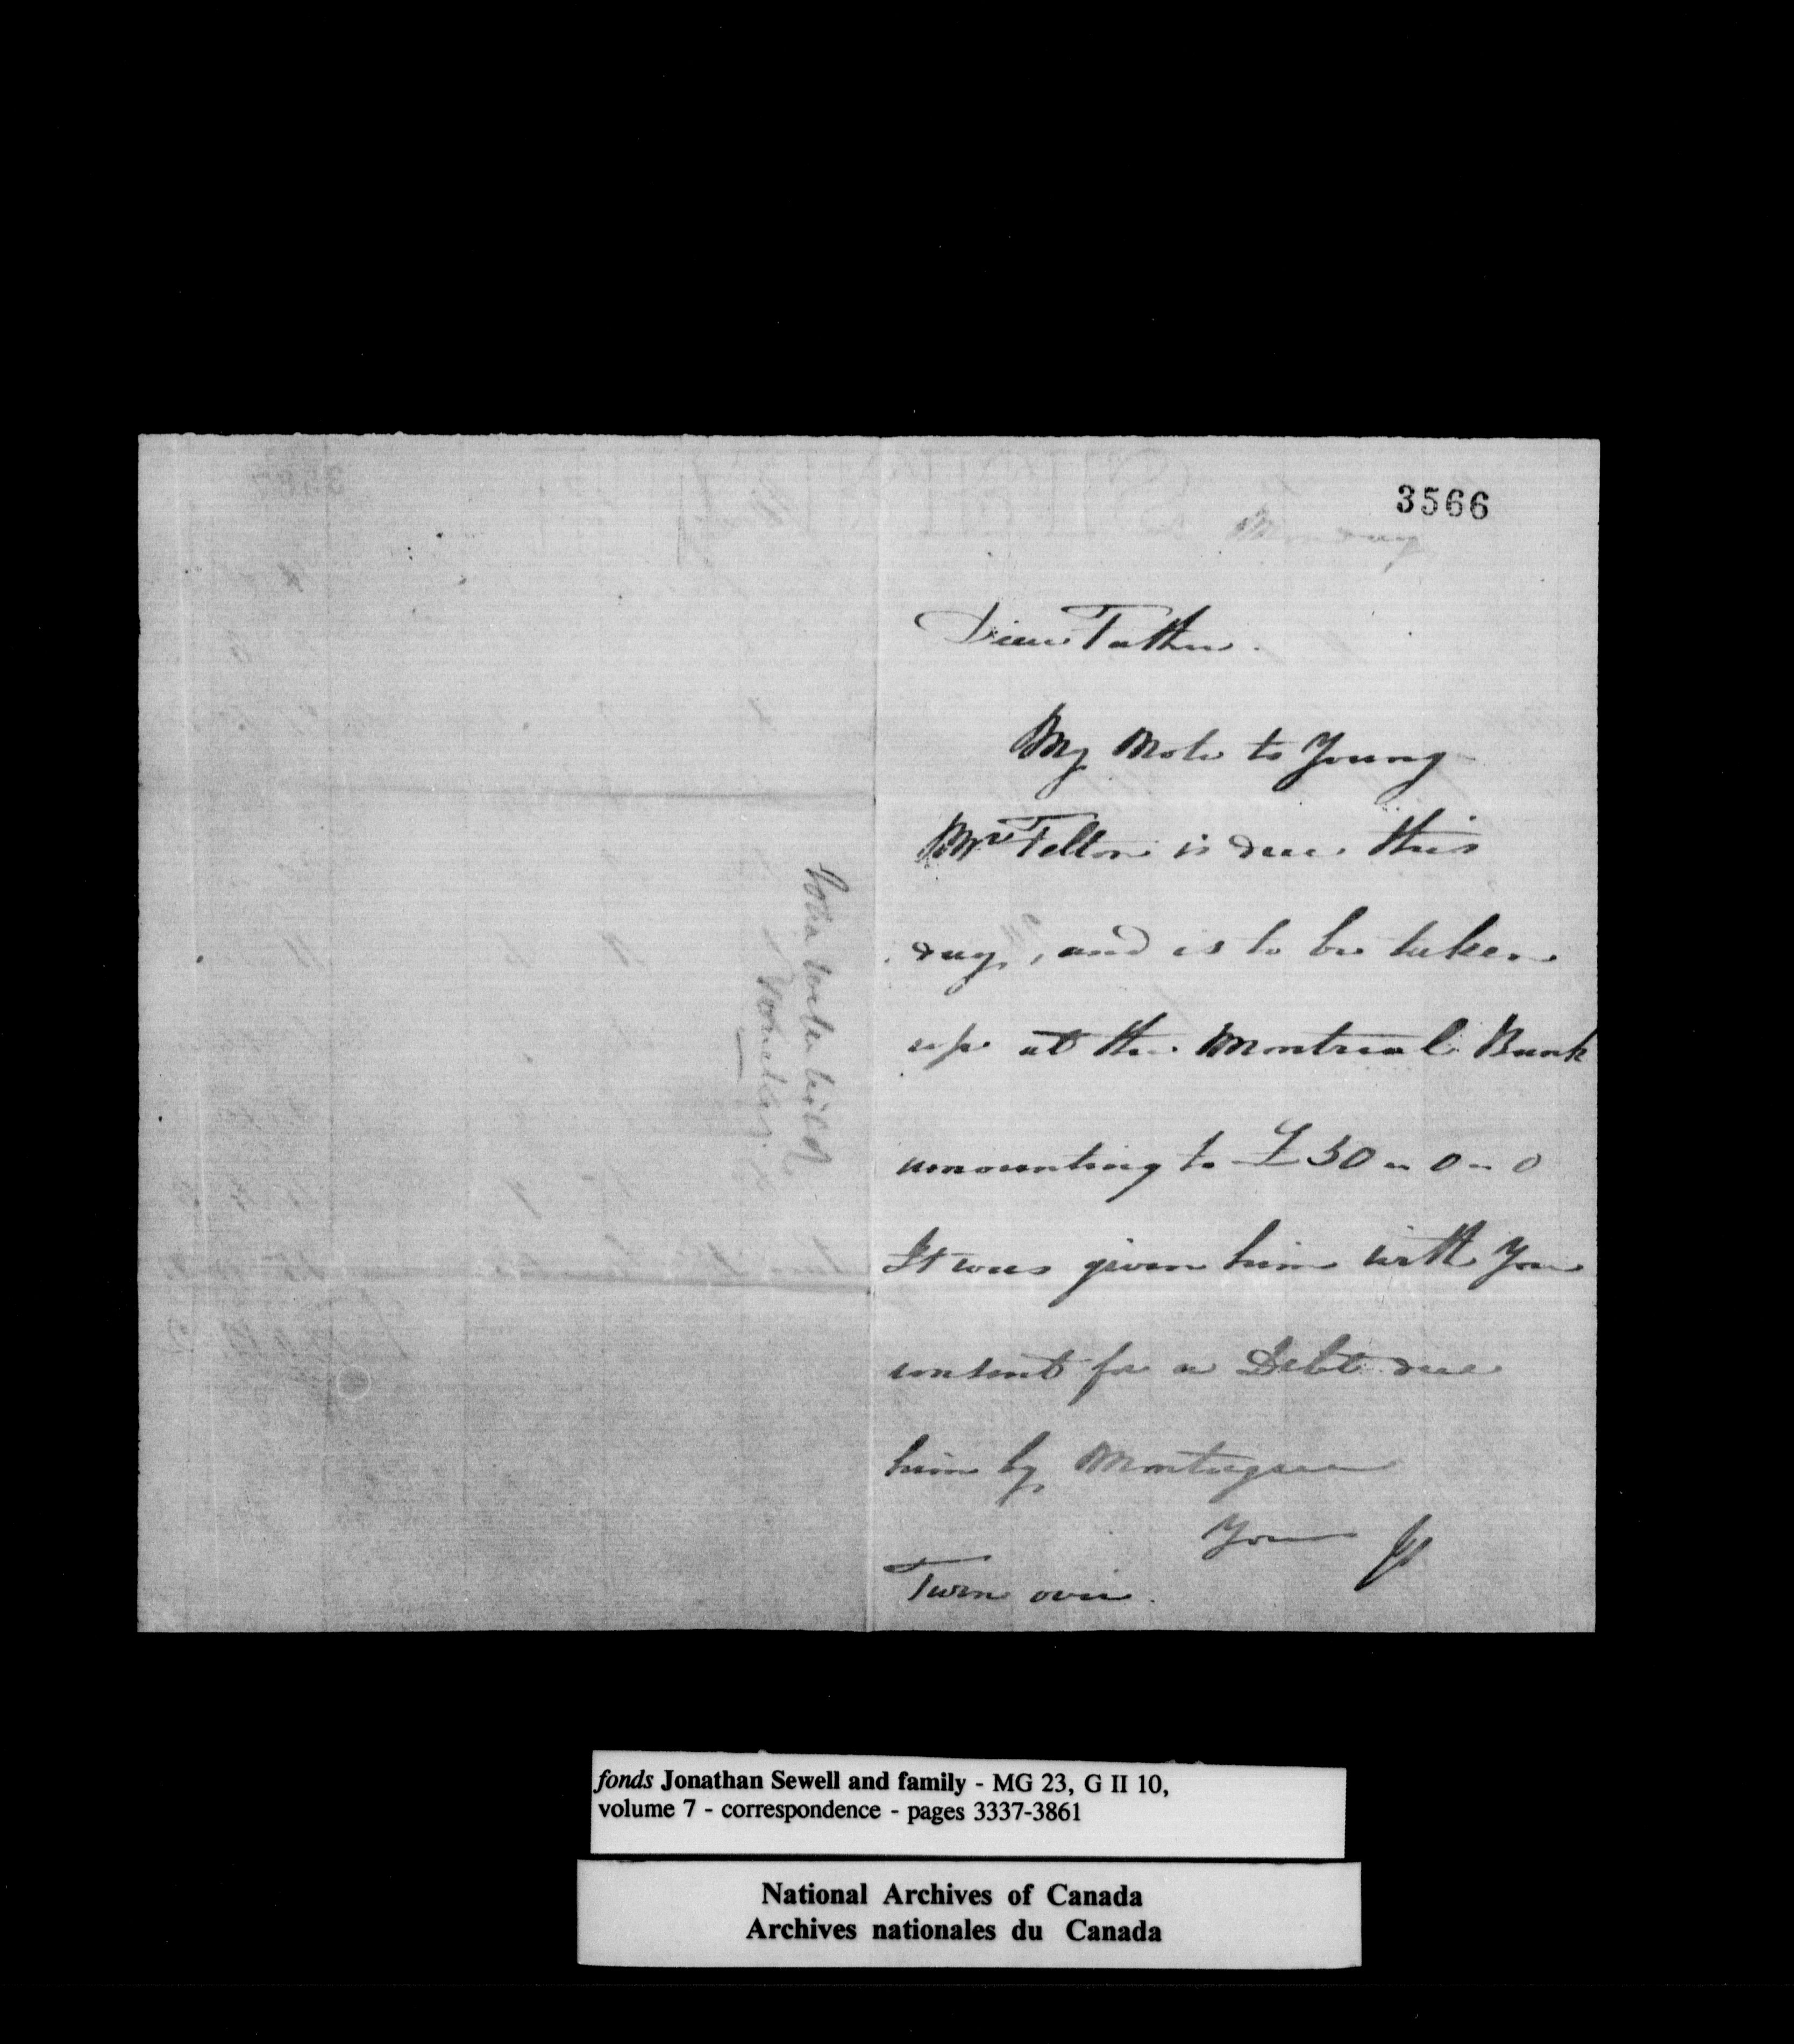 3566
Monday
Dear Father.
My Note to Young
Mr Felton is due this
day, and is to be taken
up at the Montreal Bank
amounting to £50 " 0 " 0
It was given him with your
consent for a Debt due
him by Montague
Your JS
Turn over.
fonds Jonathan Sewell and family - MG 23, G II 10,
volume 7 - correspondence - pages 3337-3861
National Archives of Canada
Archives nationales du Canada